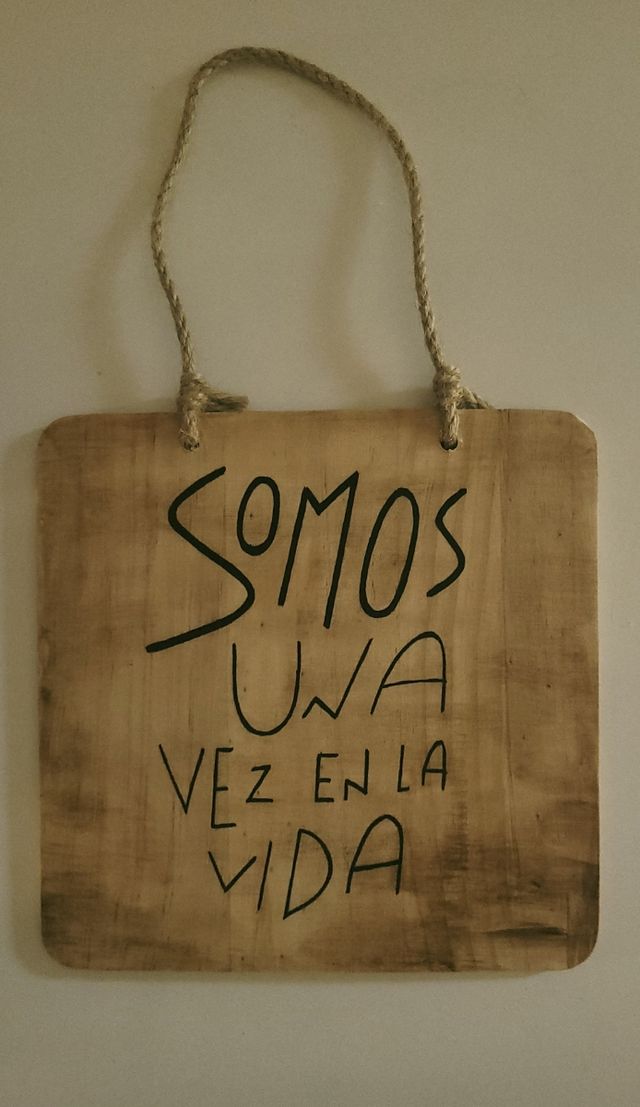 SOMOS
UNA
VEZ EN LA
VIDA